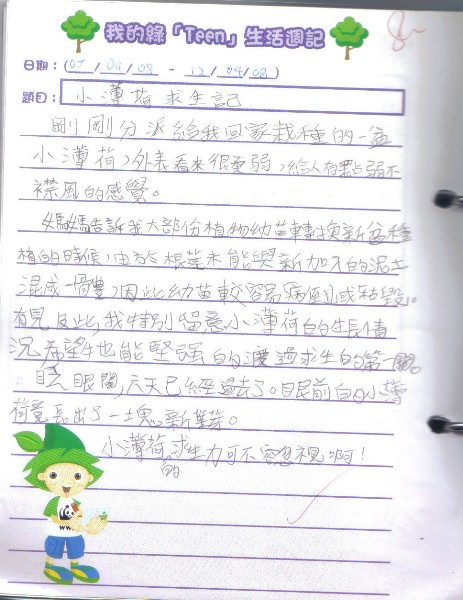 我的綠「Teen」生活週記
日期：(07/04/08 - 12/04/08)
題目： 小薄荷求生記
剛剛分派給我回家栽種的一盆
小薄荷，外表看來很柔弱，給人有點弱不
襟風的感覺。
媽媽告訴我大部份植物幼苗轉換新盆種
植的時候，由於根莖未能與新加入的泥土
混成一體，因此幼苗較容易「病倒」或枯毀。
有見及此，我特別留意小薄荷的生長情
況希望牠也能堅強的渡過求生的第一關。
眼間，六天已經過去了。眼前的小薄
荷竟長出了一塊新芽。
小薄荷的求生力可不容忽視啊！
WWF